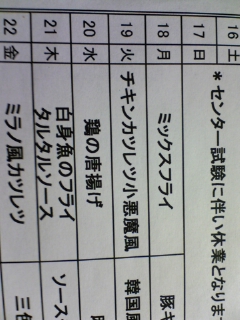 16 土
17 日
*センター試験に伴い休業となりま
18 月 ミックスフライ 豚キ
19 火 チキンカツレツ小悪魔風 韓国風
20 水 鶏の唐揚げ
21 木 白身魚のフライ
タルタルソース ソース
22 金 ミラノ風カツレツ 三